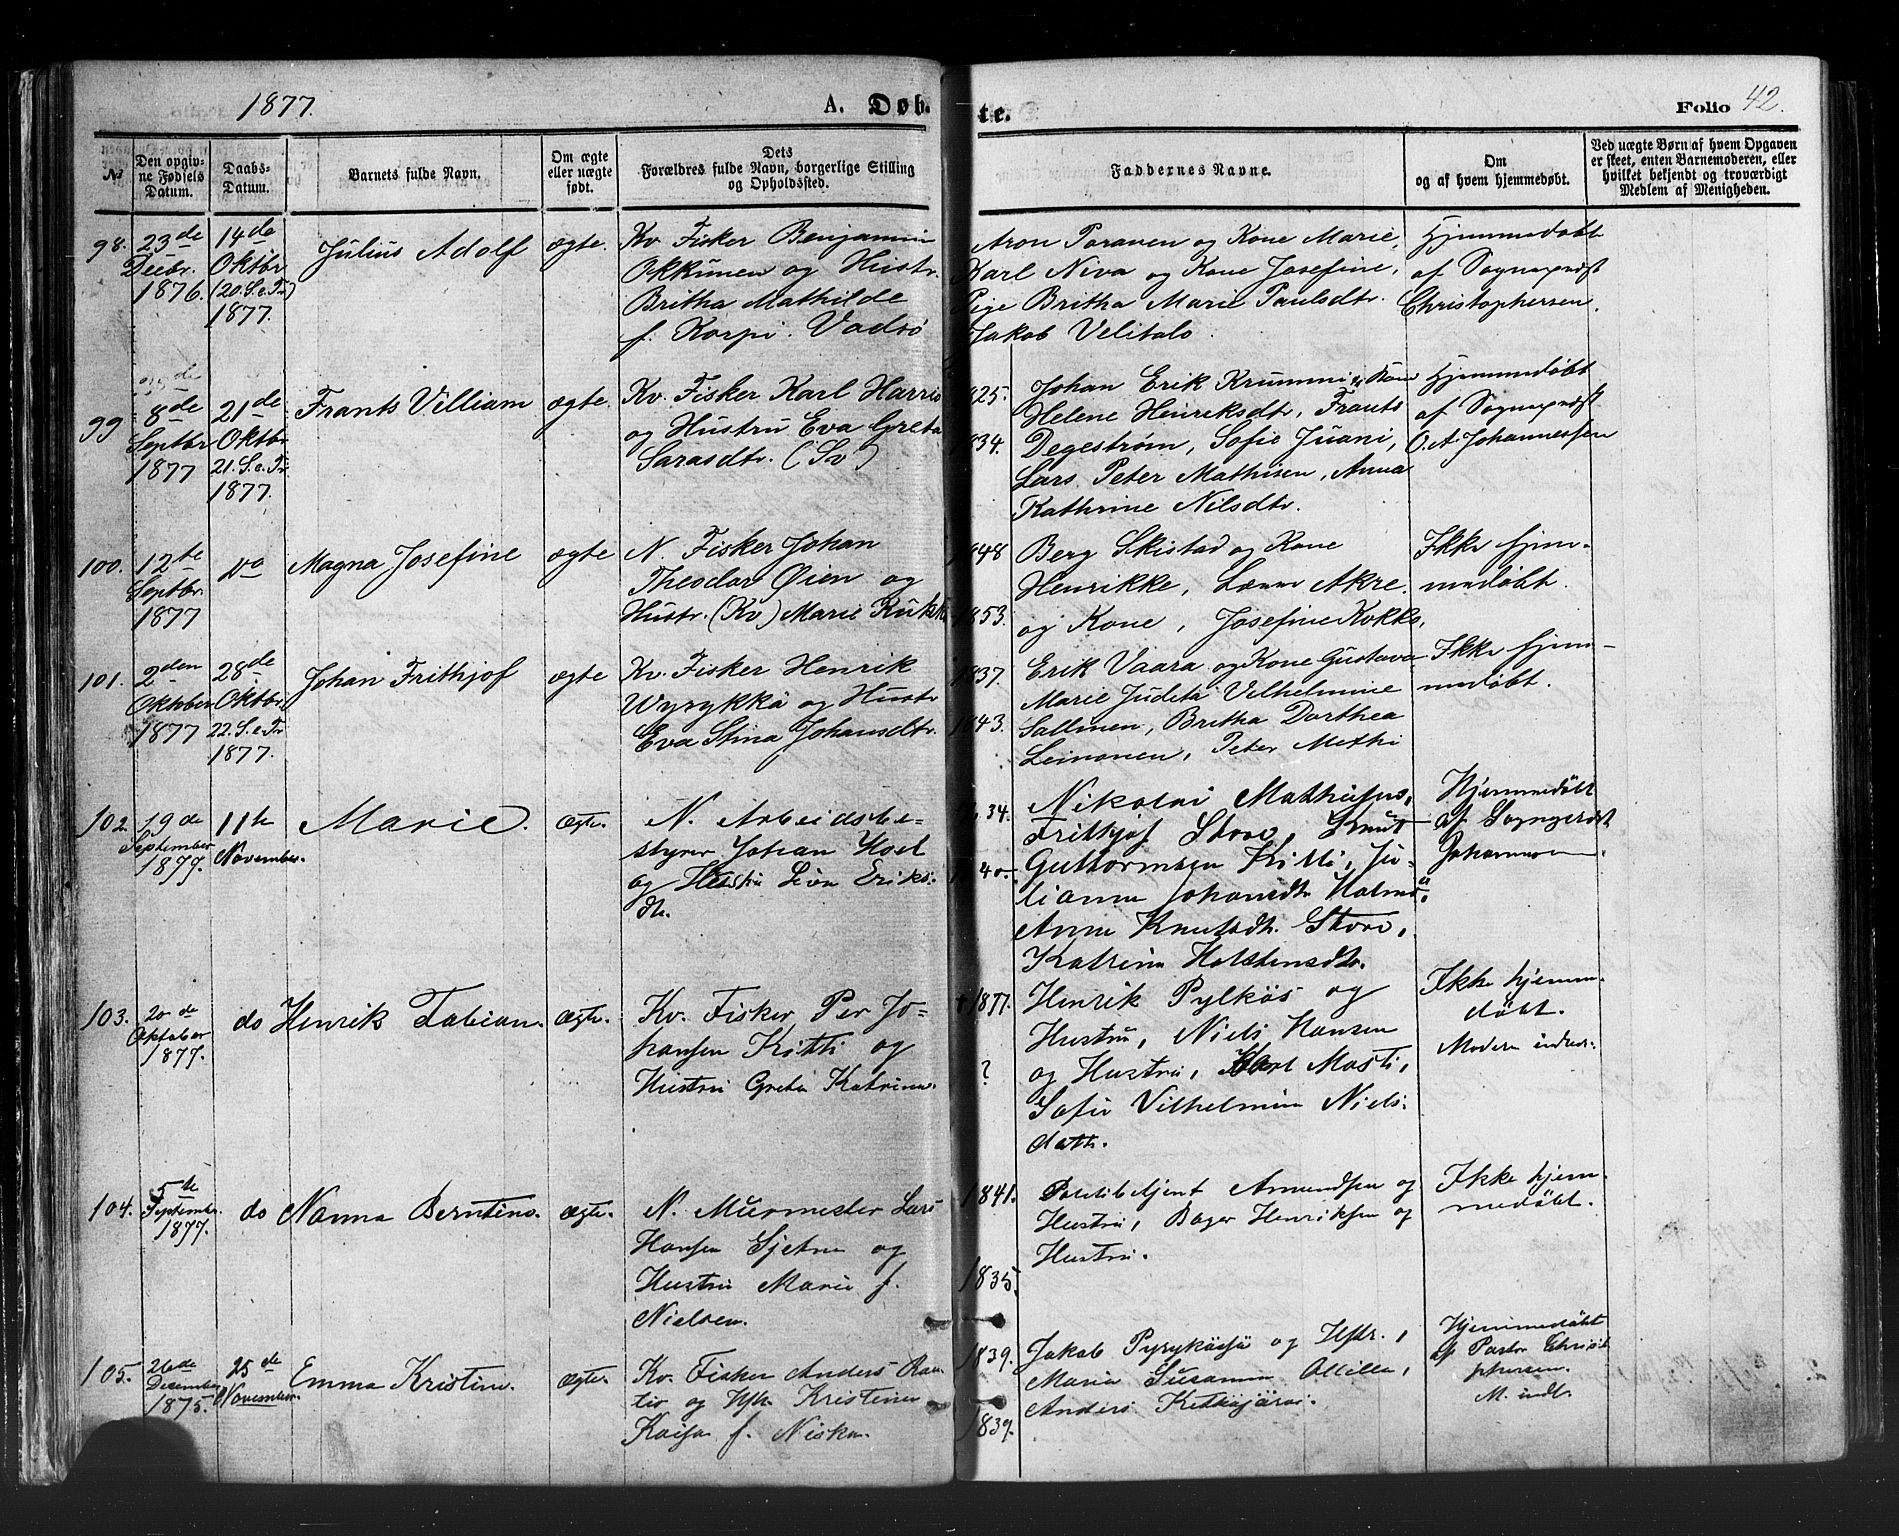 1877. A. Døb- te. Folio 42.
No
Den opgivne Fødsels Datum.
Daabs-Datum.
Barnets fulde Navn.
Om ægte eller uægte født.
Dets Forældres fulde Navn, borgerlige Stilling og Opholdssted.
Faddernes Navne.
Om og af hvem hjemmedøbt.
Ved uægte Børn af hvem Opgaven er skeet, enten Barnemoderen, eller hvilket bekjendt og troværdigt Medlem af Menigheden.
98.
23de
Decbr.
1876.
14de
Oktbr
(20. S. e. Tr)
1877.
Julius Adolf
ægte.
Kv. Fisker Benjamin
Okkunen og Hustr.
Britha Mathilde
f. Korpi. Vadsø
Aron Paraven og Kone Marie,
Karl Niva og Kone Josefine,
Pige Britha Marie Paulsdtr.
Jakob Velitalo
Hjemmedøbt
af Sognepræst
Christophersen.
99
8de
Septbr
1877
21de
Oktbr
21. S. e. Tr
1877.
Frants Villiam
ægte.
Kv. Fisker Karl Harris
og Hustru Eva Greta
Sarasdtr. (Sv)
1825.
1834.
Johan Erik Krummi og Kone
Helene Henriksdtr, Frants
Degestrøm, Sofie Juani,
Lars Peter Mathisen, Anna
Kathrine Nilsdtr.
Hjemmedøbt
af Sognepræst
O. A. Johannessen
100.
12te
Septbr.
1877
Do
Magna Josefine
ægte
N. Fisker Johan
Theodor Øien og
Hustr. (Kv) Marie
1848
1853.
Berg Skistad og Kone
Henrikke, Akre
og Kone, Josefine Kokko,
Ikke hjem-
medøbt.
101.
2den
Oktober
1877
28de
Oktbr.
22. S. e. Tr
1877.
Johan Frithjof
ægte
Kv. Fisker Henrik
Wyrykkä og Hustr
Eva Stina Johansdtr.
1837.
1843.
Erik Vaara og Kone Gustava
Marie Judeta Vilhelmine
Sallinen, Britha Dorthea
Leinonen, Peter Mathi
Ikke hjem-
medøbt.
102.
19de
September
1877.
11te
November.
Marie.
ægte.
N. Arbeidsbe-
styrer Johan
og Hustru Eriks-
dtr.
34.
40.
Nikolai Mathisen,
Frithjof Store, Knut
Guttormsen Kitti, Ju-
lianne Johansdtr
Anna Knutsdtr. Store,
Katrine Holstensdtr.
Hjemmedøbt
af Sognepræst
Johannessen.
103.
20de
Oktober
1877.
do
Henrik Fabian.
ægte.
Kv. Fisker Per Jo-
hansen Kitti og
Hustru Greta Katrina.
1877.
?
Henrik Pylkös og
Hustru, Niels Hansen
og Hustru, Karl Masti,
Sofie Vilhelmin Niels-
datt.
Ikke hjem-
døbt.
Modern
104.
5te
September
1877.
do
Nanna Berntine.
ægte.
N. Murmester Lars
Hansen Sjetne og
Hustru Marie f.
Nielsen.
1841.
1835.
Politibetjent Amundsen og
Hustru, Bager Henriksen og
Hustru.
Ikke hjem-
medøbt.
105.
26de
December
1875.
25de
November
Emma Kristine.
ægte.
Kv. Fisker Anders Rau-
tio og Hstr. Kristine
Kaisa f. Niska.
1839.
1839.
Jakob og Hstr.,
Maria Susanna Ollilla,
Anders Kitkøjärvi.
Hjemmedøbt
af Pastor Christo-
phersen.
M. indl.